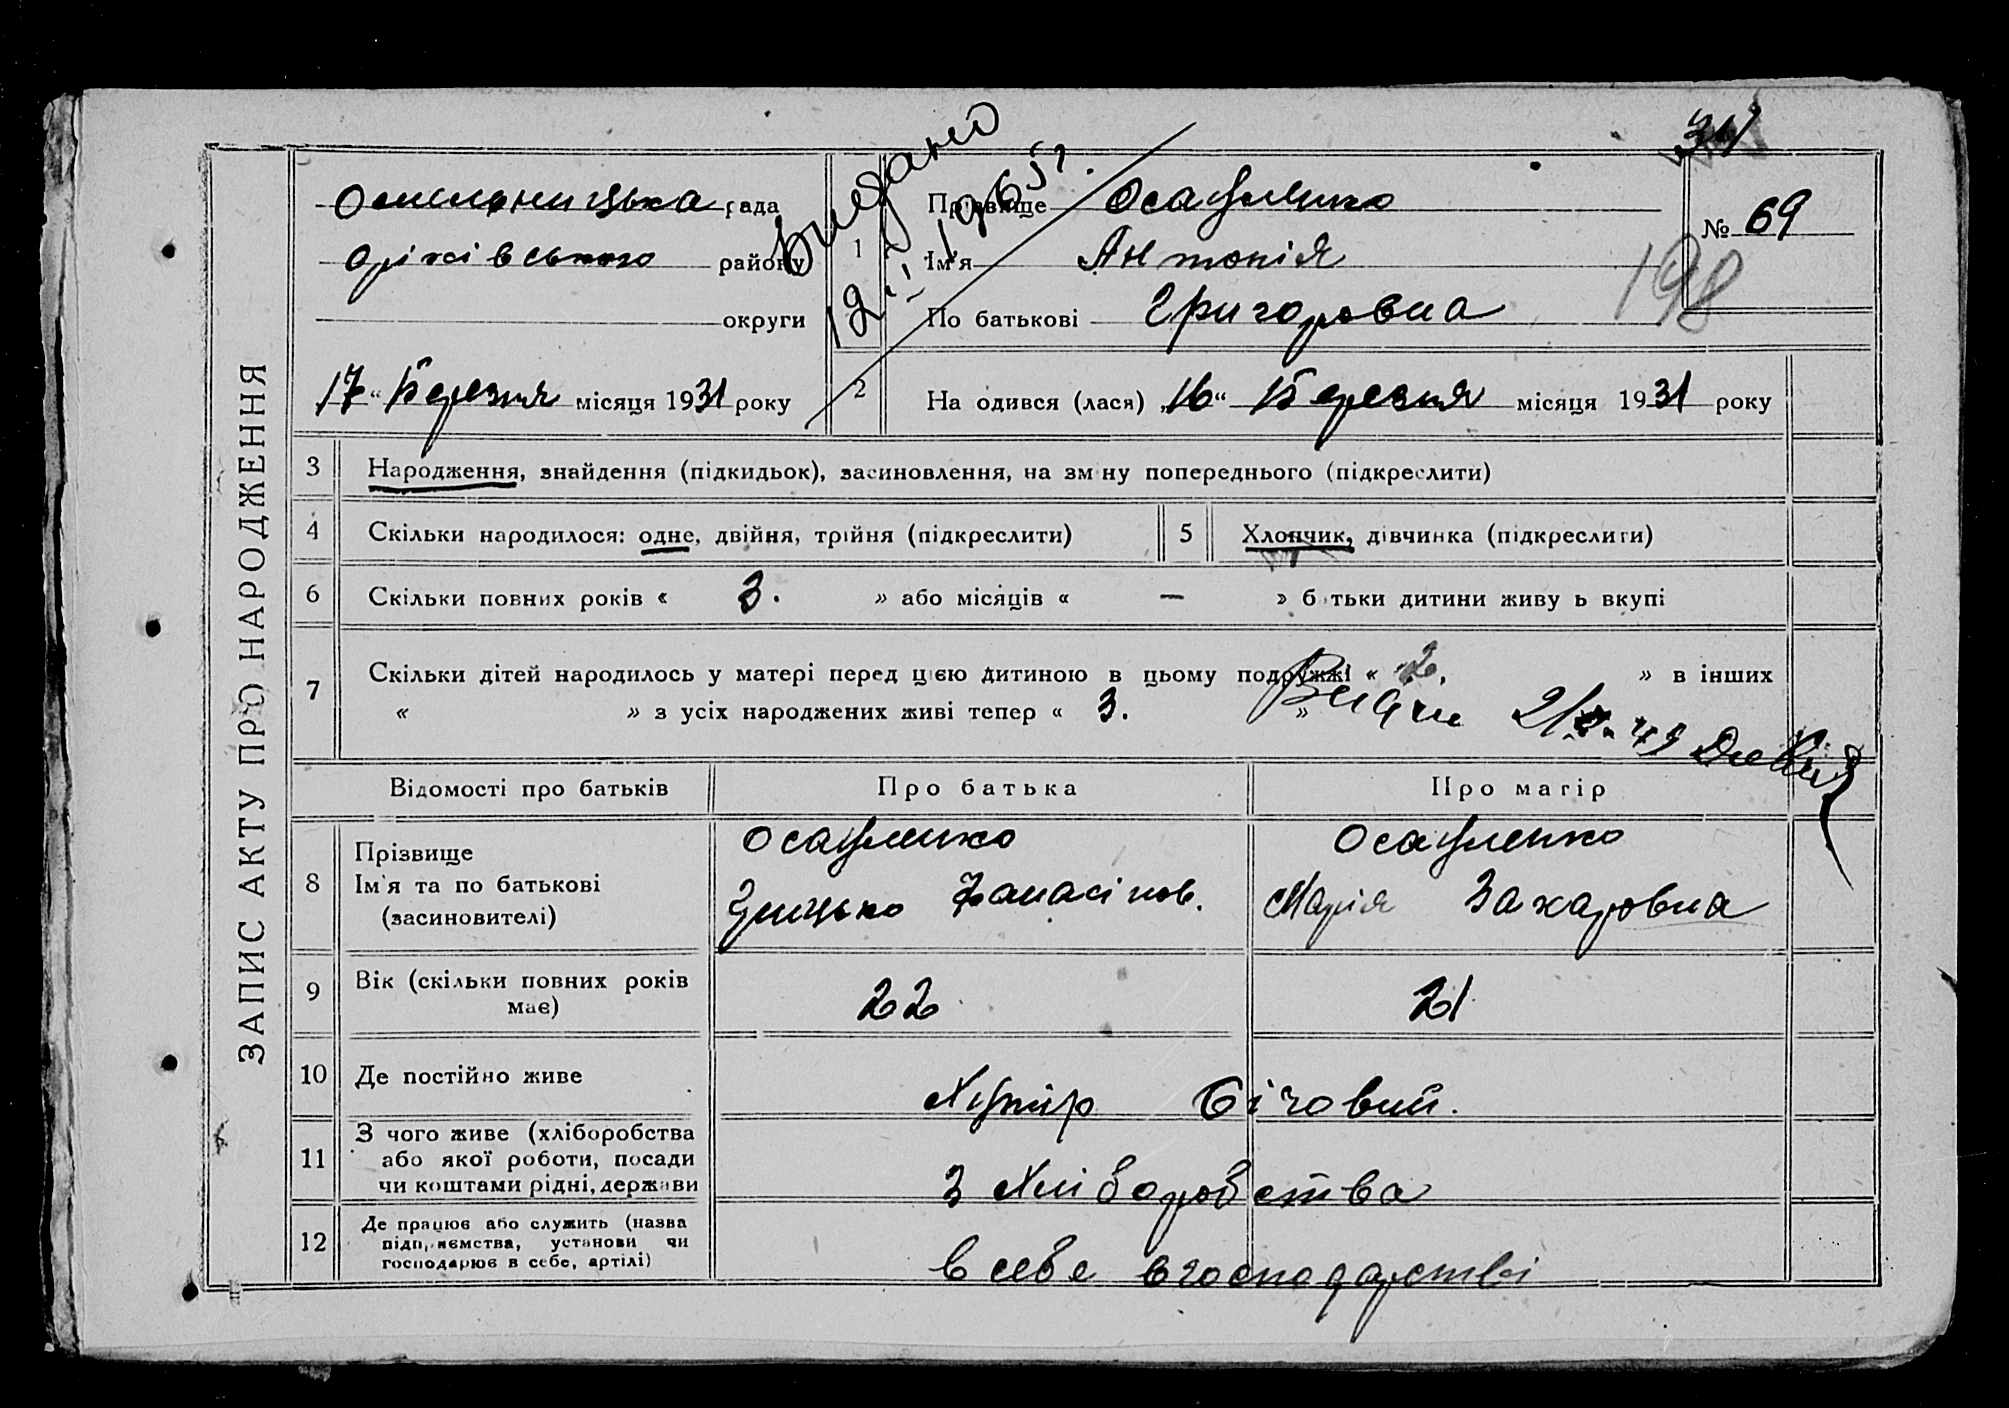 ЗАПИС АКТУ ПРО НАРОДЖЕННЯ
рада
Оріхівського району
округи
"17" Березня місяця 1931 року
Видано
12. 1965 г.
1 Прізвище Осауленко
Ім'я Антонія
По батькові Григоровна
31
№ 69
198
2 На одився (лася) "16" Березня місяця 1931 року
3 Народження, знайдення (підкидьок), засиновлення, на зм ну попереднього (підкреслити)
4 Скільки народилося: одне, двійня, трійня (підкреслити)
5 Хлопчик, дівчинка (підкреслити)
6 Скільки повних років « 3. » або місяців « — » б тьки дитини живу ь вкупі
7 Скільки дітей народилось у матері перед цією дитиною в цьому подружжі « 2. » в інших
« » з усіх народжених живі тепер « 3. »
Відомості про батьків
Про батька
Про матір
8 Прізвище
Ім'я та по батькові
(засиновителі)
Осауленко
Грицько Панасінов.
Осауленко
Марія Захаровна
9 Вік (скільки повних років
має)
22
21
10 Де постійно живе
Хутір Січовий.
11 З чого живе (хліборобства
або якої роботи, посади
чи коштами рідні, держави
З Хліборобства
12 Де працює або служить (назва
підприємства, установи чи
господарює в себе, артілі)
в себе в господарстві